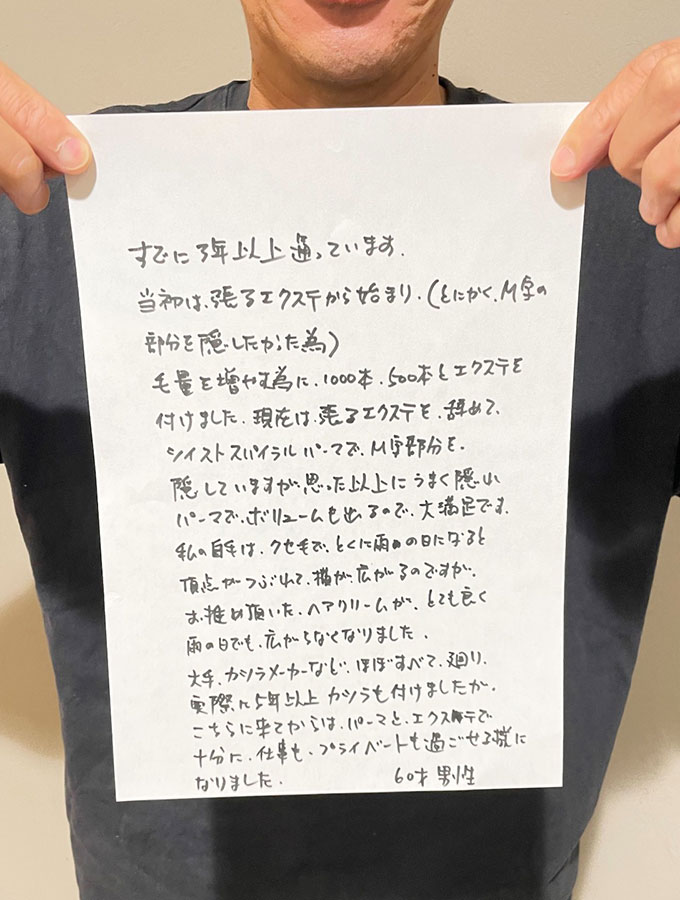 すでに3年以上通っています.
当初は、張るエクステから始まり.(とにかく、M字の
部分を隠したかった為)
毛量を増やす為に、1000本、500本とエクステを
付けました、現在は、張るエクステを、辞めて、
ツイストスパイラルパーマで、M字部分を、
隠していますが思った以上にうまく隠れ
パーマで、ボリュームも出るので、大満足です、
私の自毛は、クセ毛で、とくに雨の日になると
頂点がつぶれて、横が、広がるのですが、
お推め頂いた、ヘアクリームが、とても良く
雨の日でも、広がらなくなりました.
大手、カツラメーカーなど、ほぼすべて、廻り、
実際に5年以上カツラも付けましたが、
こちらに来てからは、パーマと、エクステで
十分に、仕事も、プライベートも過ごせる様に
なりました. 60才 男性